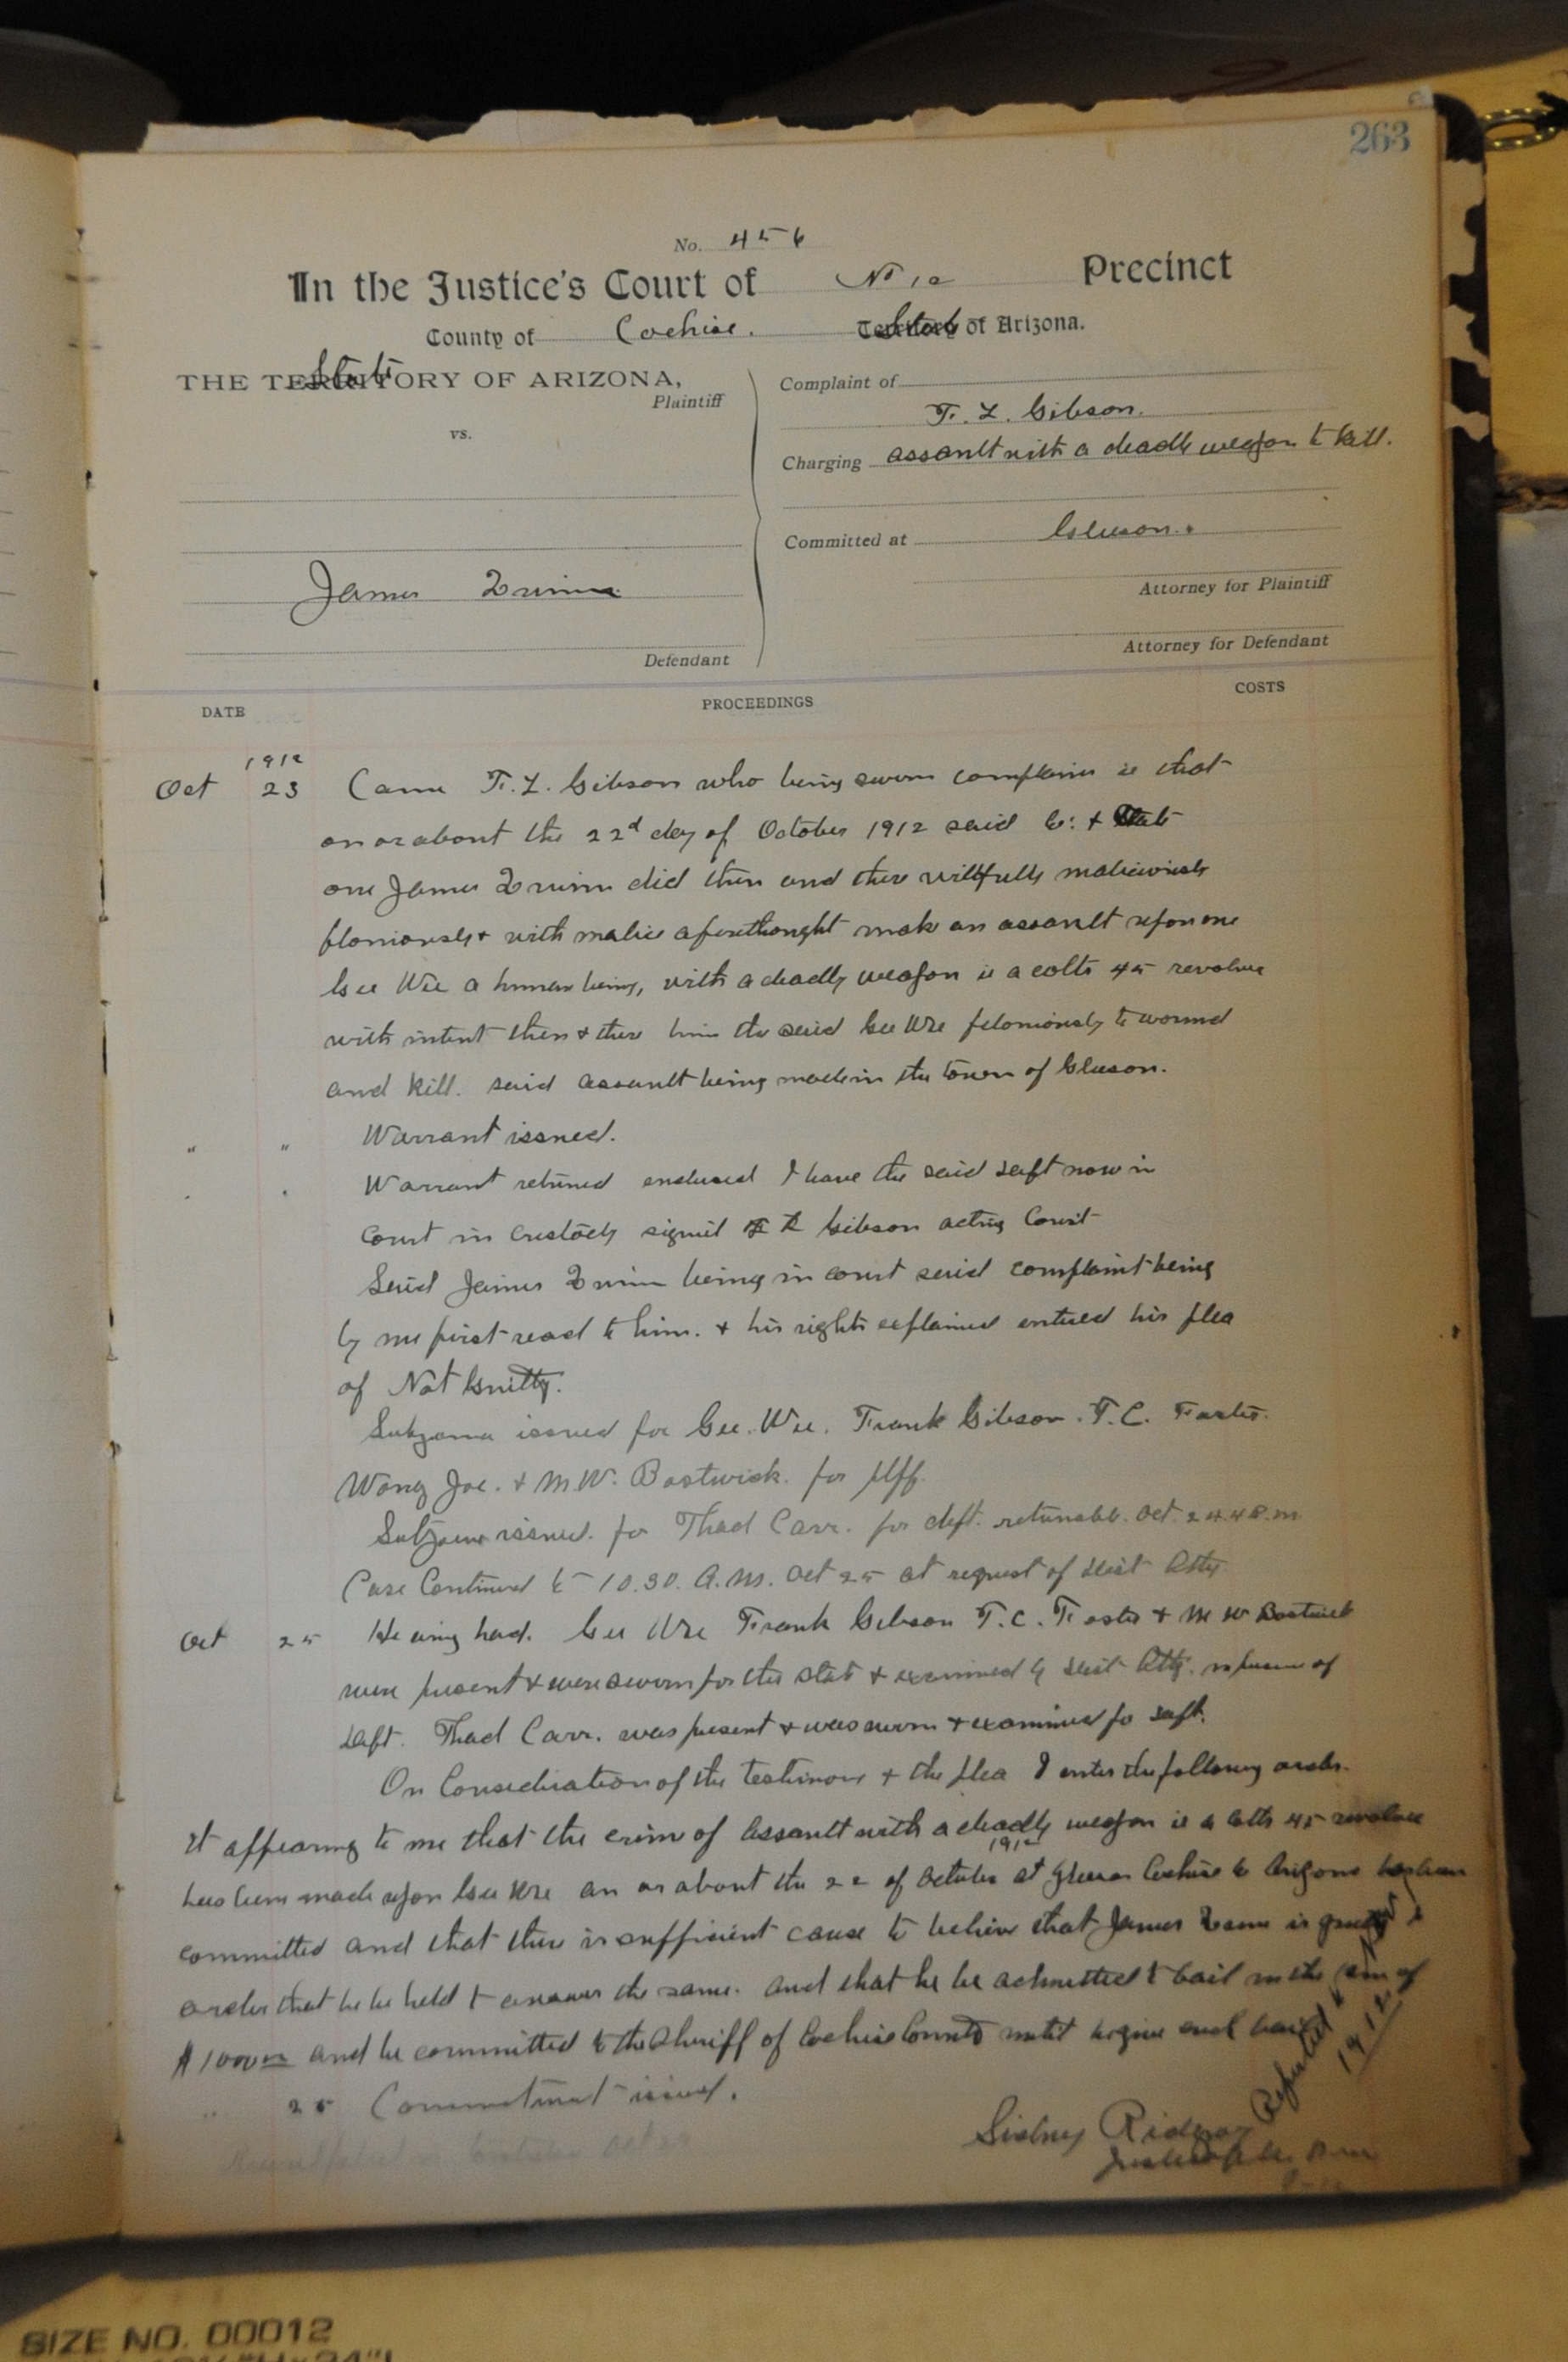 263
No. 456
In the Justice's Court of No 10 Precinct
County of Cochise. State of Arizona.
THE TERRITORY OF ARIZONA, State
Plaintiff
vs.
James Quinn
Defendant
Complaint of
F. L. Gibson.
Charging assault with a deadly weapon to kill.
Committed at Gleeson.
Attorney for Plaintiff
Attorney for Defendant
DATE PROCEEDINGS COSTS
1912
Oct 23 Came F. L. Gibson who being sworn complains ie that
on or about the 22d day of October 1912 said Co: & State
one James Quinn did then and there willfully maliciously
feloniously & with malice aforethought make an assault upon one
Gee Wee a human being, with a deadly weapon ie a colts 45 revolver
with intent then & there him the said Gee Wee feloniously to wound
and kill. said assault being made in the town of Gleeson.
" " Warrant issued.
Warrant returned endorsed I have the said Deft now in
court in custody signed F L Gibson acting Const
Said James Quinn being in court said complaint being
by me first read to him. & his rights explained entered his plea
of Not Guilty.
Subpoena issued for Gee. Wee. Frank Gibson. T. C. Foster.
Wong Joe. & M. W. Bostwick. for plff.
Subpoena issued. for Thad Carr. for deft. returnable. Oct. 24
Case Continued to 10.30. A.M. Oct 25 at request of Dist Atty.
Oct 25 Hearing had. Gee Wee Frank Gibson T. C. Foster & M W Bostwick
were present & were sworn for the state & examined by Dist Atty. in presence of
Deft. Thad Carr. was present & was sworn & examined fo Deft.
On Consideration of the testimony & the plea I enter the following order.
It appearing to me that the crime of Assault with a deadly weapon ie a colts 45 revolver
has been made upon Gee Wee on or about the 22 of October 1912 at Gleeson Cochise Co Arizona has been
committed and that there is sufficient cause to believe that James Quinn is guilty I
order that he be held to answer the same. and that he be admitted to bail in the sum of
$1000.00 and be committed to the Sheriff of Cochise County until he give such bail
" 25 Commitment issued.
Sidney
1912
SIZE NO. 00012